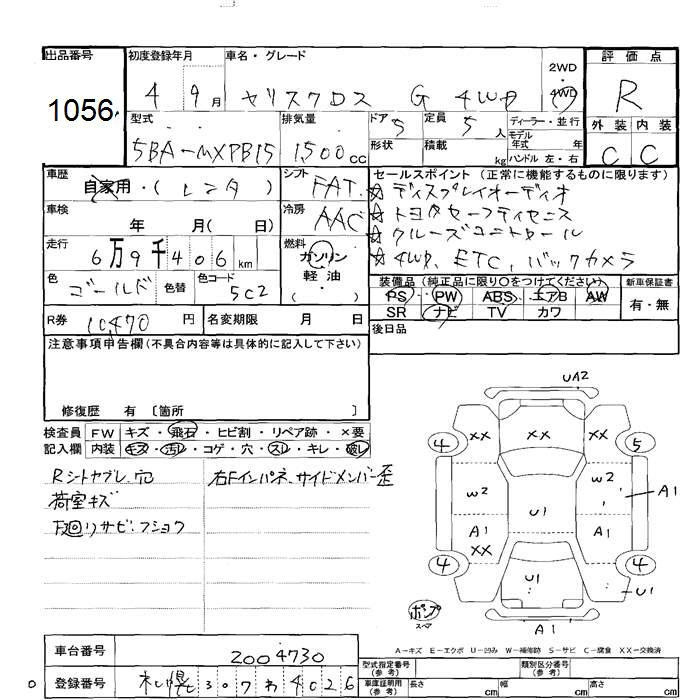 出品番号 初度登録年月 車名・グレード 2WD・4WD 評価点
1056 4 9月 ヤリスクロス G 4WD R
型式 排気量 ドア 定員 ディーラー・並行 外装 内装
5BA-MXPB15 1500cc 5 5人 モデル年式 年 C C
形状 積載 kg ハンドル 左・右
車歴 自家用・(レンタ) シフト FAT セールスポイント(正常に機能するものに限ります)
☆ディスプレイオーディオ
車検 年 月(日) 冷房 AAC ☆トヨタセーフティセンス
☆クルーズコントロール
走行 6万9千406km 燃料 ガソリン・軽油・( ) ☆4WD、ETC、バックカメラ
色 ゴールド 色替 色コード 5C2 装備品(純正品に限り〇をつけてください) 新車保証書
PS PW ABS エアB AW 有・無
SR ナビ TV カワ
R券 10,470円 名変期限 月 日 後日品
注意事項申告欄(不具合内容等は具体的に記入して下さい)
修復歴 有〔箇所 〕
検査員 FW キズ・飛石・ヒビ割・リペア跡・×要
記入欄 内装 キズ・汚レ・コゲ・穴・スレ・キレ・破レ
Rシートヤブレ.穴 右Fインパネ.サイドメンバー歪
荷室キズ
下廻リサビ.フショク
UA2
4 XX XX XX 5
W2 U1 W2 A1
A1 A1
XX
4 U1 4 U1
ポンプ スペア A1
A-キズ E-エクボ U-凹み W-補修跡 S-サビ C-腐食 XX-交換済
車台番号 2004730
型式指定番号(参考) 類別区分番号(参考)
登録番号 札幌 307 わ 4026
車庫証明用(参考) 長さ cm 幅 cm 高さ cm